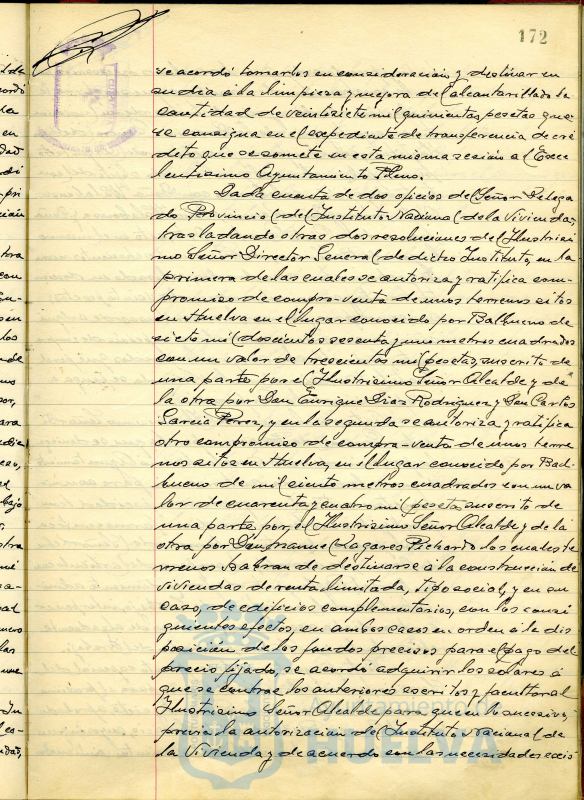 172
se acordó tomarlos en consideración y destinar en
su día a la limpieza y mejora del alcantarillado la
cantidad de veintisiete mil quinientas pesetas que
se consigna en el expediente de transferencia de cré-
dito que se somete en esta misma sesión al Exce-
lentísimo Ayuntamiento Pleno.
Dada cuenta de dos oficios del Señor Delega
do Provincial del Instituto Nacional de la Vivienda,
trasladando otras dos resoluciones del Ilustrísi
mo Señor Director General de dicho Instituto, en la
primera de las cuales se autoriza y ratifica com-
promiso de compra-venta de unos terrenos sitos
en Huelva en el lugar conocido por Balbueno de
siete mil doscientos sesenta y uno metros cuadrados
con un valor de trescientas mil pesetas, suscrito de
una parte por el Ilustrísimo Señor Alcalde y de
la otra por Don Enrique Díaz Rodríguez y Don Carlos
García Pérez, y en la segunda se autoriza y ratifica
otro compromiso de compra-venta de unos terre
nos sitos en Huelva, en el lugar conocido por Bal-
bueno de mil ciento metros cuadrados con un va
lor de cuarenta y cuatro mil pesetas suscrito de
una parte por el Ilustrísimo Señor Alcalde y de la
otra por Don Manuel Lagares Pichardo los cuales te
rrenos habrán de destinarse a la construcción de
viviendas de renta limitada, tipo social, y en su
caso, de edificios complementarios, con los consi
guientes efectos, en ambos casos en orden a la dis
posición de los fondos precisos para el pago del
precio fijado, se acordó adquirir los solares a
que se contrae los anteriores escritos y facultar al
Ilustrísimo Señor Alcalde para que en lo sucesivo,
previa la autorización del Instituto Nacional de
la Vivienda y de acuerdo con las necesidades exis
Ayuntamiento de
HUELVA